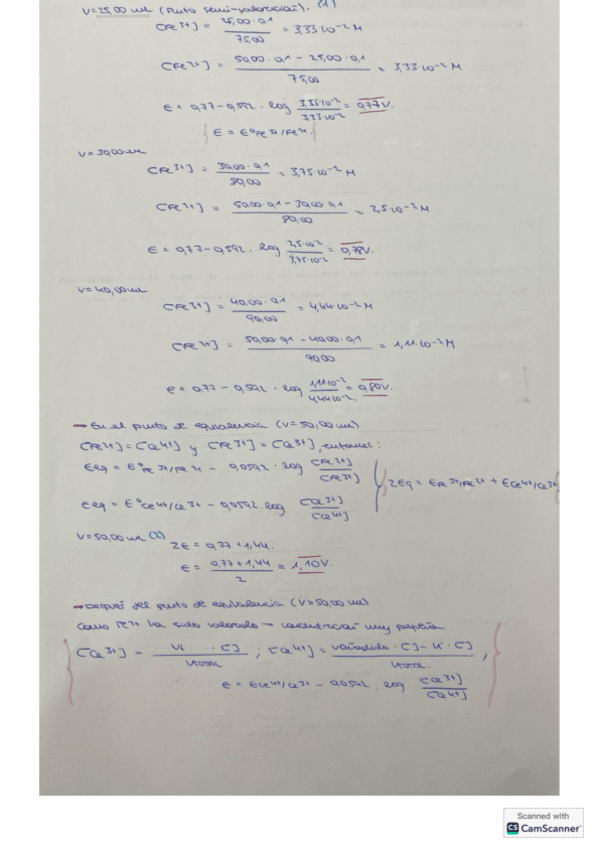 V=25,00 ml (Punto semi-valoración). (1)
[Fe3+] = 25,00·0,1 / 75,00 = 3,33·10-2 M
[Fe2+] = 50,00·0,1 - 25,00·0,1 / 75,00 = 3,33·10-2 M
E = 0,77-0,592 · log 3,33·10-2 / 3,33·10-2 = 0,77V.
E = EºFe3+/Fe2+
V=30,00 ml
[Fe3+] = 30,00·0,1 / 80,00 = 3,75·10-2 M
[Fe2+] = 50,00·0,1 - 30,00·0,1 / 80,00 = 2,5·10-2 M
E = 0,77-0,592 · log 2,5·10-2 / 3,75·10-2 = 0,78V.
V=40,00 ml
[Fe3+] = 40,00·0,1 / 90,00 = 4,44·10-2 M
[Fe2+] = 50,00·0,1 - 40,00·0,1 / 90,00 = 1,11·10-2 M
E = 0,77 - 0,592 · log 1,11·10-2 / 4,44·10-2 = 0,80V.
- En el punto de equivalencia (V=50,00 ml)
[Fe2+]=[Ce4+] y [Fe3+]=[Ce3+], entonces:
Eeq = EºFe3+/Fe2+ - 0,0592 · log [Fe2+] / [Fe3+]
2Eeq = EFe3+/Fe2+ + ECe4+/Ce3+
Eeq = EºCe4+/Ce3+ - 0,0592 · log [Ce3+] / [Ce4+]
V=50,00 ml (2)
2E = 0,77+1,44.
E = 0,77+1,44 / 2 = 1,10V.
- Después del punto de equivalencia (V>50,00 ml)
Como Fe2+ ha sido valorado → concentración muy pequeña
[Ce3+] = Vi · [] / Vtotal ; [Ce4+] = Vañadido · [] - Vi · [] / Vtotal ,
E = ECe4+/Ce3+ - 0,0592 · log [Ce3+] / [Ce4+]
Scanned with
CS CamScanner